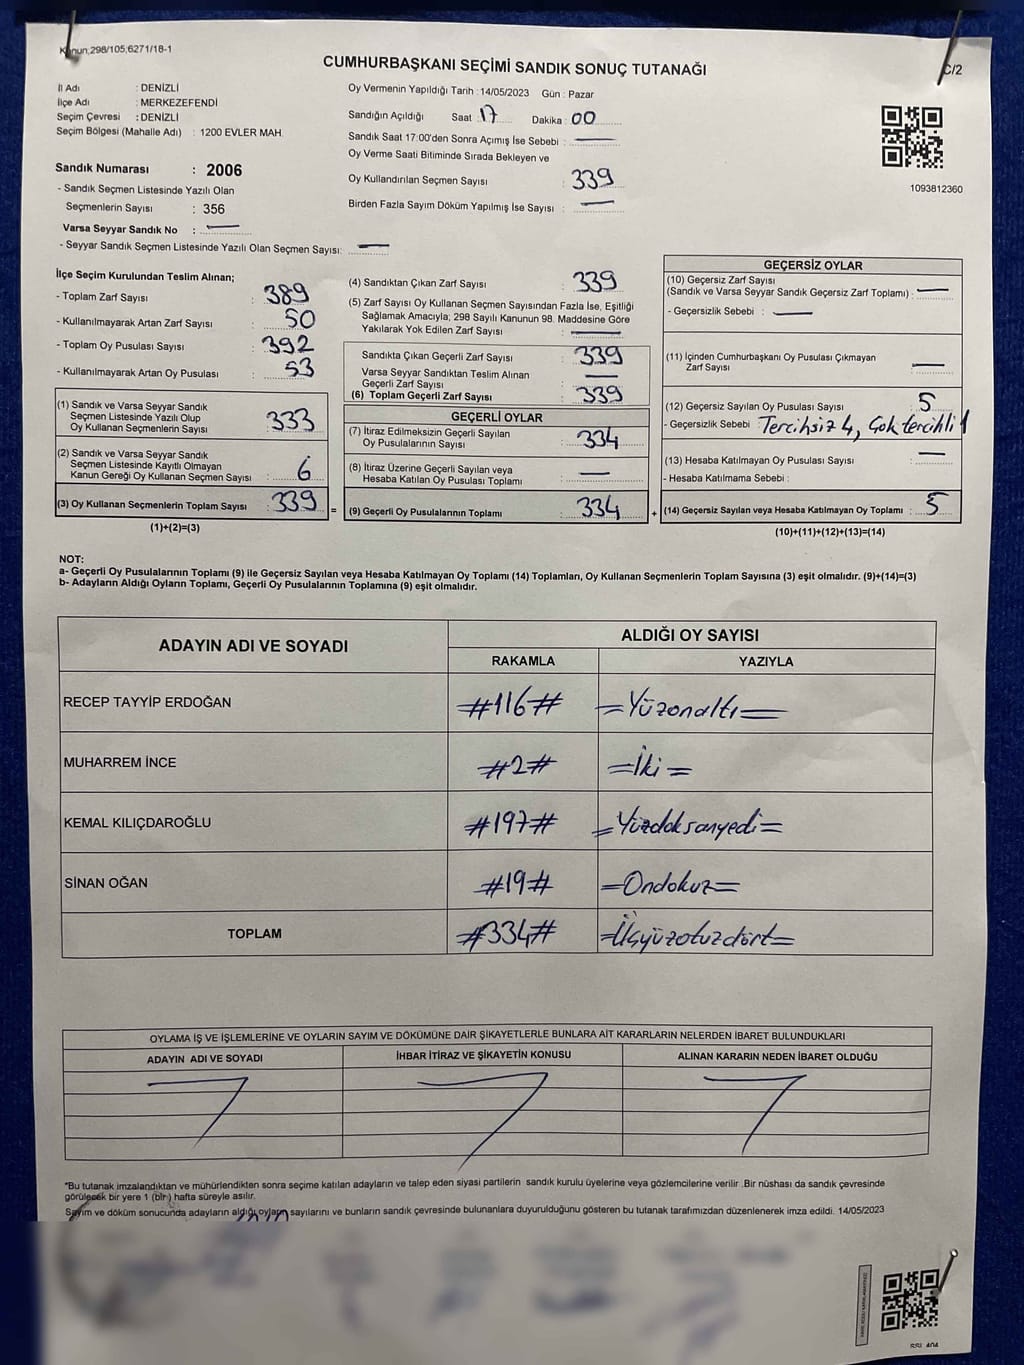 Kanun;298/105;6271/18-1
CUMHURBAŞKANI SEÇİMİ SANDIK SONUÇ TUTANAĞI
C/2
İl Adı : DENİZLİ
İlçe Adı : MERKEZEFENDİ
Seçim Çevresi : DENİZLİ
Seçim Bölgesi (Mahalle Adı) : 1200 EVLER MAH.
Oy Vermenin Yapıldığı Tarih : 14/05/2023 Gün : Pazar
Sandığın Açıldığı Saat : 17 Dakika : 00
Sandık Saat 17:00'den Sonra Açımış İse Sebebi :
Oy Verme Saati Bitiminde Sırada Bekleyen ve
Oy Kullandırılan Seçmen Sayısı : 339
Birden Fazla Sayım Döküm Yapılmış İse Sayısı :
1093812360
Sandık Numarası : 2006
- Sandık Seçmen Listesinde Yazılı Olan
Seçmenlerin Sayısı : 356
Varsa Seyyar Sandık No :
- Seyyar Sandık Seçmen Listesinde Yazılı Olan Seçmen Sayısı:
İlçe Seçim Kurulundan Teslim Alınan;
- Toplam Zarf Sayısı : 389
- Kullanılmayarak Artan Zarf Sayısı : 50
- Toplam Oy Pusulası Sayısı : 392
- Kullanılmayarak Artan Oy Pusulası : 53
(1) Sandık ve Varsa Seyyar Sandık
Seçmen Listesinde Yazılı Olup
Oy Kullanan Seçmenlerin Sayısı : 333
(2) Sandık ve Varsa Seyyar Sandık
Seçmen Listesinde Kayıtlı Olmayan
Kanun Gereği Oy Kullanan Seçmen Sayısı : 6
(3) Oy Kullanan Seçmenlerin Toplam Sayısı : 339 =
(1)+(2)=(3)
(4) Sandıktan Çıkan Zarf Sayısı : 339
(5) Zarf Sayısı Oy Kullanan Seçmen Sayısından Fazla İse, Eşitliği
Sağlamak Amacıyla; 298 Sayılı Kanunun 98. Maddesine Göre
Yakılarak Yok Edilen Zarf Sayısı :
Sandıkta Çıkan Geçerli Zarf Sayısı : 339
Varsa Seyyar Sandıktan Teslim Alınan
Geçerli Zarf Sayısı :
(6) Toplam Geçerli Zarf Sayısı : 339
GEÇERLİ OYLAR
(7) İtiraz Edilmeksizin Geçerli Sayılan
Oy Pusulalarının Sayısı : 334
(8) İtiraz Üzerine Geçerli Sayılan veya
Hesaba Katılan Oy Pusulası Toplamı :
(9) Geçerli Oy Pusulalarının Toplamı : 334 +
GEÇERSİZ OYLAR
(10) Geçersiz Zarf Sayısı
(Sandık ve Varsa Seyyar Sandık Geçersiz Zarf Toplamı) :
- Geçersizlik Sebebi :
(11) İçinden Cumhurbaşkanı Oy Pusulası Çıkmayan
Zarf Sayısı :
(12) Geçersiz Sayılan Oy Pusulası Sayısı : 5
- Geçersizlik Sebebi : Tercihsiz 4, Çok tercihli 1
(13) Hesaba Katılmayan Oy Pusulası Sayısı :
- Hesaba Katılmama Sebebi :
(14) Geçersiz Sayılan veya Hesaba Katılmayan Oy Toplamı : 5
(10)+(11)+(12)+(13)=(14)
NOT:
a- Geçerli Oy Pusulalarının Toplamı (9) ile Geçersiz Sayılan veya Hesaba Katılmayan Oy Toplamı (14) Toplamları, Oy Kullanan Seçmenlerin Toplam Sayısına (3) eşit olmalıdır. (9)+(14)=(3)
b- Adayların Aldığı Oyların Toplamı, Geçerli Oy Pusulalarının Toplamına (9) eşit olmalıdır.
ADAYIN ADI VE SOYADI
ALDIĞI OY SAYISI
RAKAMLA YAZIYLA
RECEP TAYYİP ERDOĞAN #116# =Yüzonaltı=
MUHARREM İNCE #2# =İki=
KEMAL KILIÇDAROĞLU #197# =Yüzdoksanyedi=
SİNAN OĞAN #19# =Ondokuz=
TOPLAM #334# =Üçyüzotuzdört=
OYLAMA İŞ VE İŞLEMLERİNE VE OYLARIN SAYIM VE DÖKÜMÜNE DAİR ŞİKAYETLERLE BUNLARA AİT KARARLARIN NELERDEN İBARET BULUNDUKLARI
ADAYIN ADI VE SOYADI İHBAR İTİRAZ VE ŞİKAYETİN KONUSU ALINAN KARARIN NEDEN İBARET OLDUĞU
*Bu tutanak imzalandıktan ve mühürlendikten sonra seçime katılan adayların ve talep eden siyasi partilerin sandık kurulu üyelerine veya gözlemcilerine verilir .Bir nüshası da sandık çevresinde
görülecek bir yere 1 (bir) hafta süreyle asılır.
Sayım ve döküm sonucunda adayların aldığı oyların sayılarını ve bunların sandık çevresinde bulunanlara duyurulduğunu gösteren bu tutanak tarafımızdan düzenlenerek imza edildi. 14/05/2023